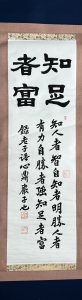 知足
者富
知人者智自知者明勝人者
有力自勝者强知足者富
老子語